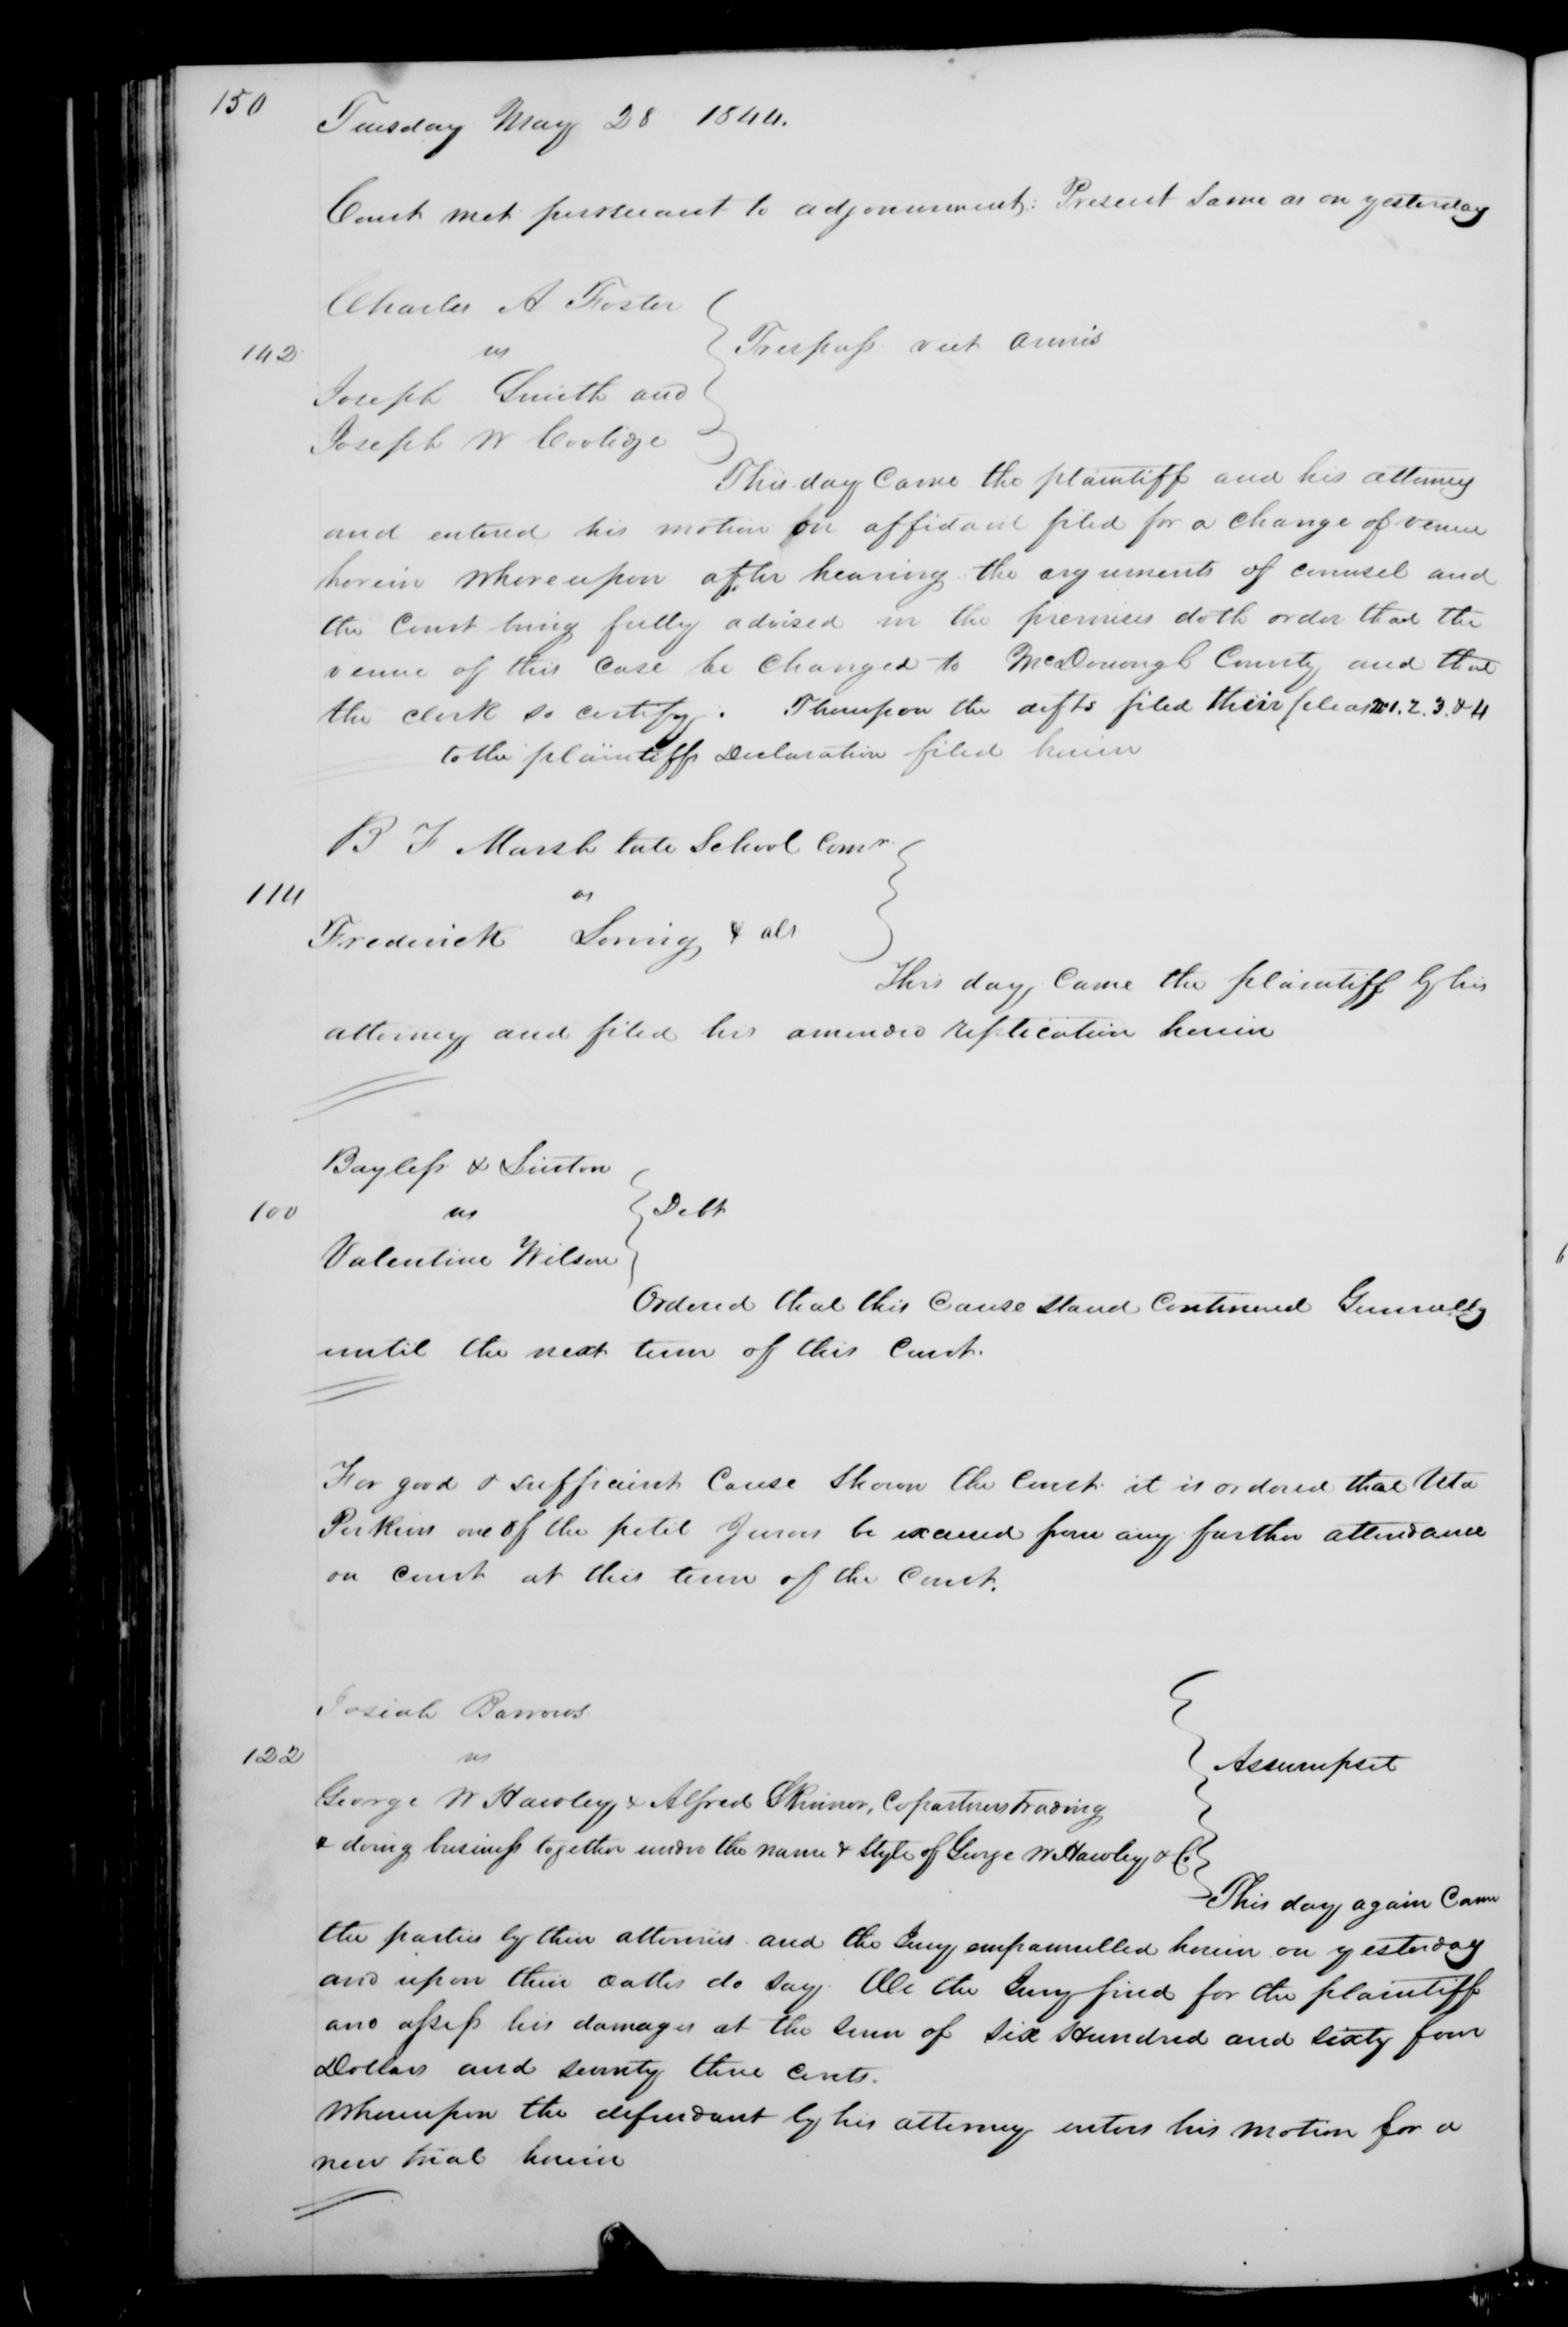 150
Tuesday May 28 1844.
Court met pursuant to adjournment: Present Same as on yesterday
Charles A Foster
142 vs Trespass viet armis
Joseph Smith and
Joseph W Coolidge
This day Came the plaintiff and his attorney
and entered his motion on affidavit filed for a change of venue
herein whereupon after hearing the arguments of counsel and
the Court being fully advised in the premises doth order that the
venue of this Case be Changed to McDonough County and that
the clerk so certify. Thereupon the defts filed their pleas 1. 2. 3. & 4
to the plaintiffs Declaration filed herein
B F Marsh late School Comr.
114 vs
Frederick Loring & als
This day Came the plaintiff by his
attorney and filed his amended replication herein
Bayless & Linton
100 vs Debt
Valentine Wilson
Ordered that this Cause stand Continued Generally
until the next term of this Court.
For good & sufficient Cause Shown the Court it is ordered that
Perkins one of the petit Jurors be excused from any further attendance
on court at this term of the Court.
Josiah Barrows
122 vs Assumpsit
George W Hawley & Alfred Skinner, Copartners trading
& doing business together under the name & Style of George W Hawley & Co
This day again Came
the parties by their attornies and the Jury empannelled herein on yesterday
and upon their oathes do say We the Jury find for the plaintiff
and assess his damages at the Sum of Six Hundred and Sixty four
Dollars and seventy three Cents.
Whereupon the defendant by his attorney enters his motion for a
new trial herein